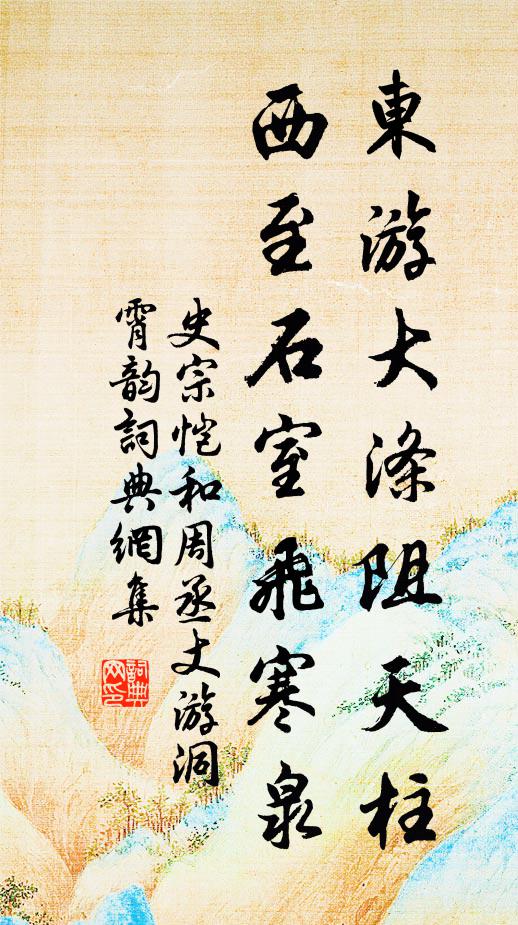 東游大滌阻天柱
西至石室飛寒泉
史宗愷和周丞丈游洞
霄韵詞典網集
詞典
网印